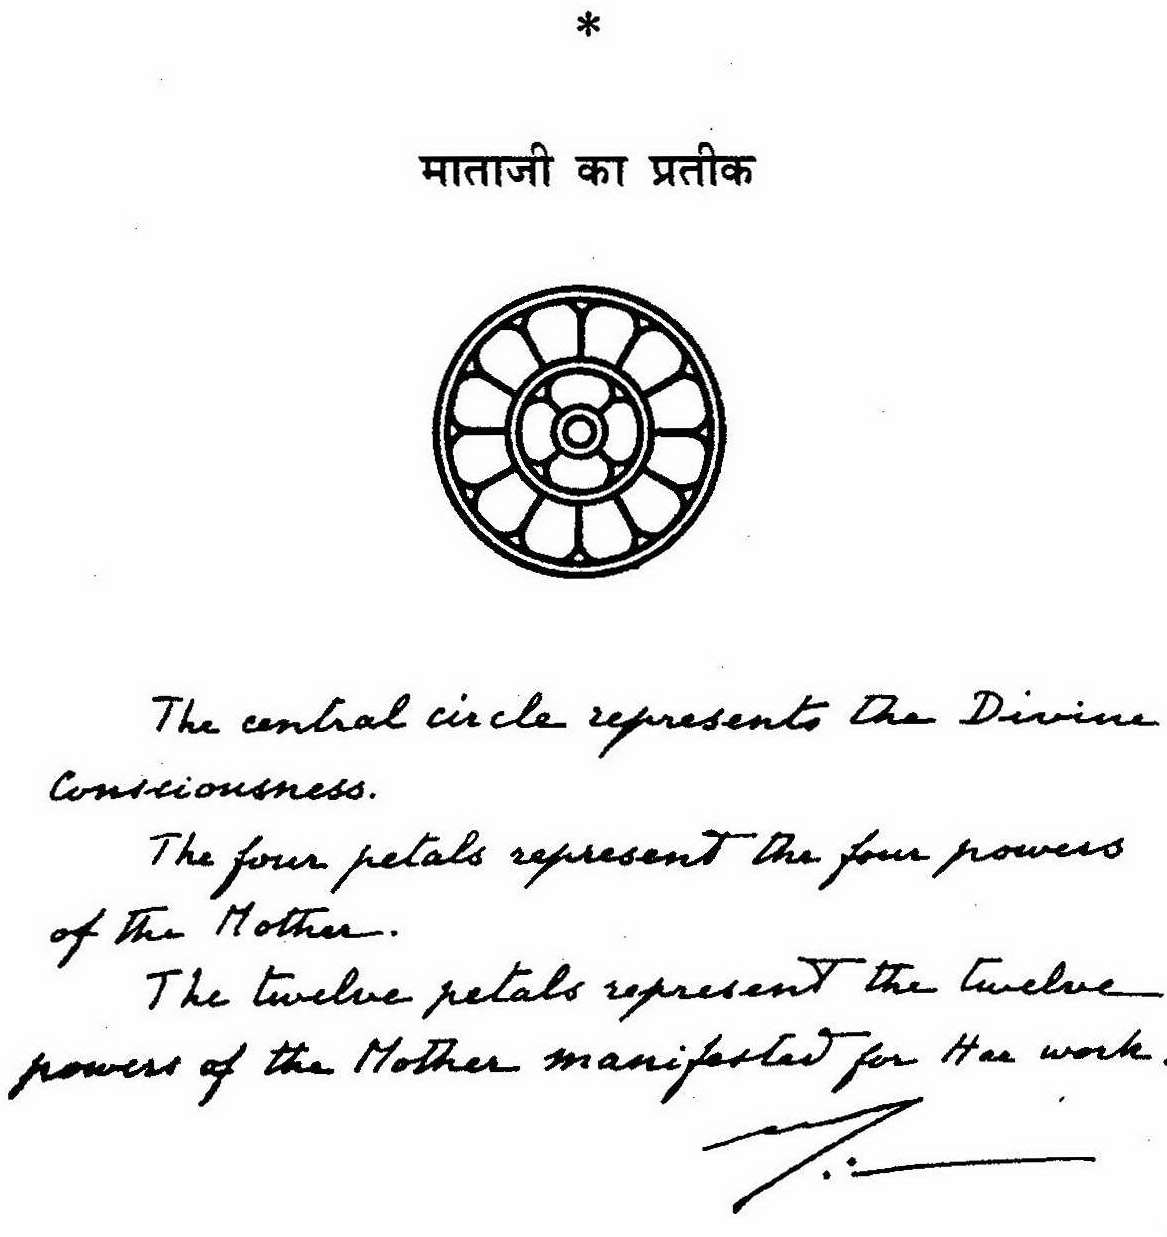 *
माताजी का प्रतीक
The central circle represents the Divine
Consciousness.
The four petals represent the four powers
of the Mother.
The twelve petals represent the twelve
powers of the Mother manifested for Her work.